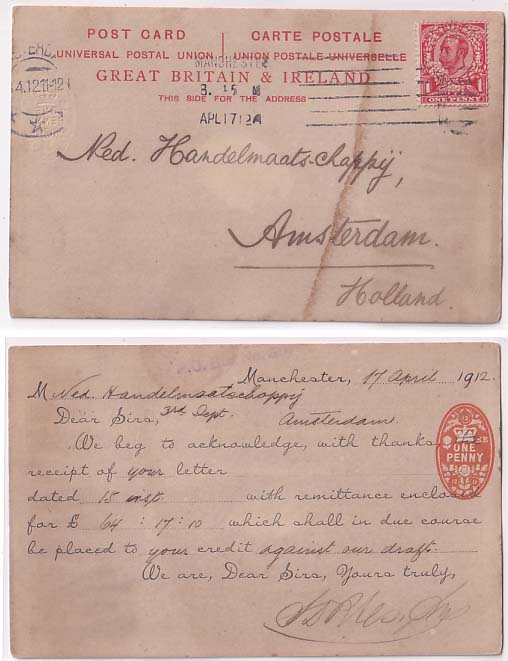 POST CARD | CARTE POSTALE
UNIVERSAL POSTAL UNION | UNION POSTALE UNIVERSELLE
MANCHESTER
GREAT BRITAIN & IRELAND
4.12.11-12
8. 15 M
THIS SIDE FOR THE ADDRESS
APL 17 12
1 1
ONE PENNY
Ned. Handelmaats-chappij,
Amsterdam.
Holland.
Manchester, 17 April 1912.
M Ned. Handelmaatschappij
Dear Sirs, 3rd Dept. Amsterdam.
We beg to acknowledge, with thanks,
receipt of your letter
ONE
PENNY
dated 15 inst with remittance enclosed
for £ 64 : 17 : 10 which shall in due course
be placed to your credit against our draft.
We are, Dear Sirs, Yours truly,